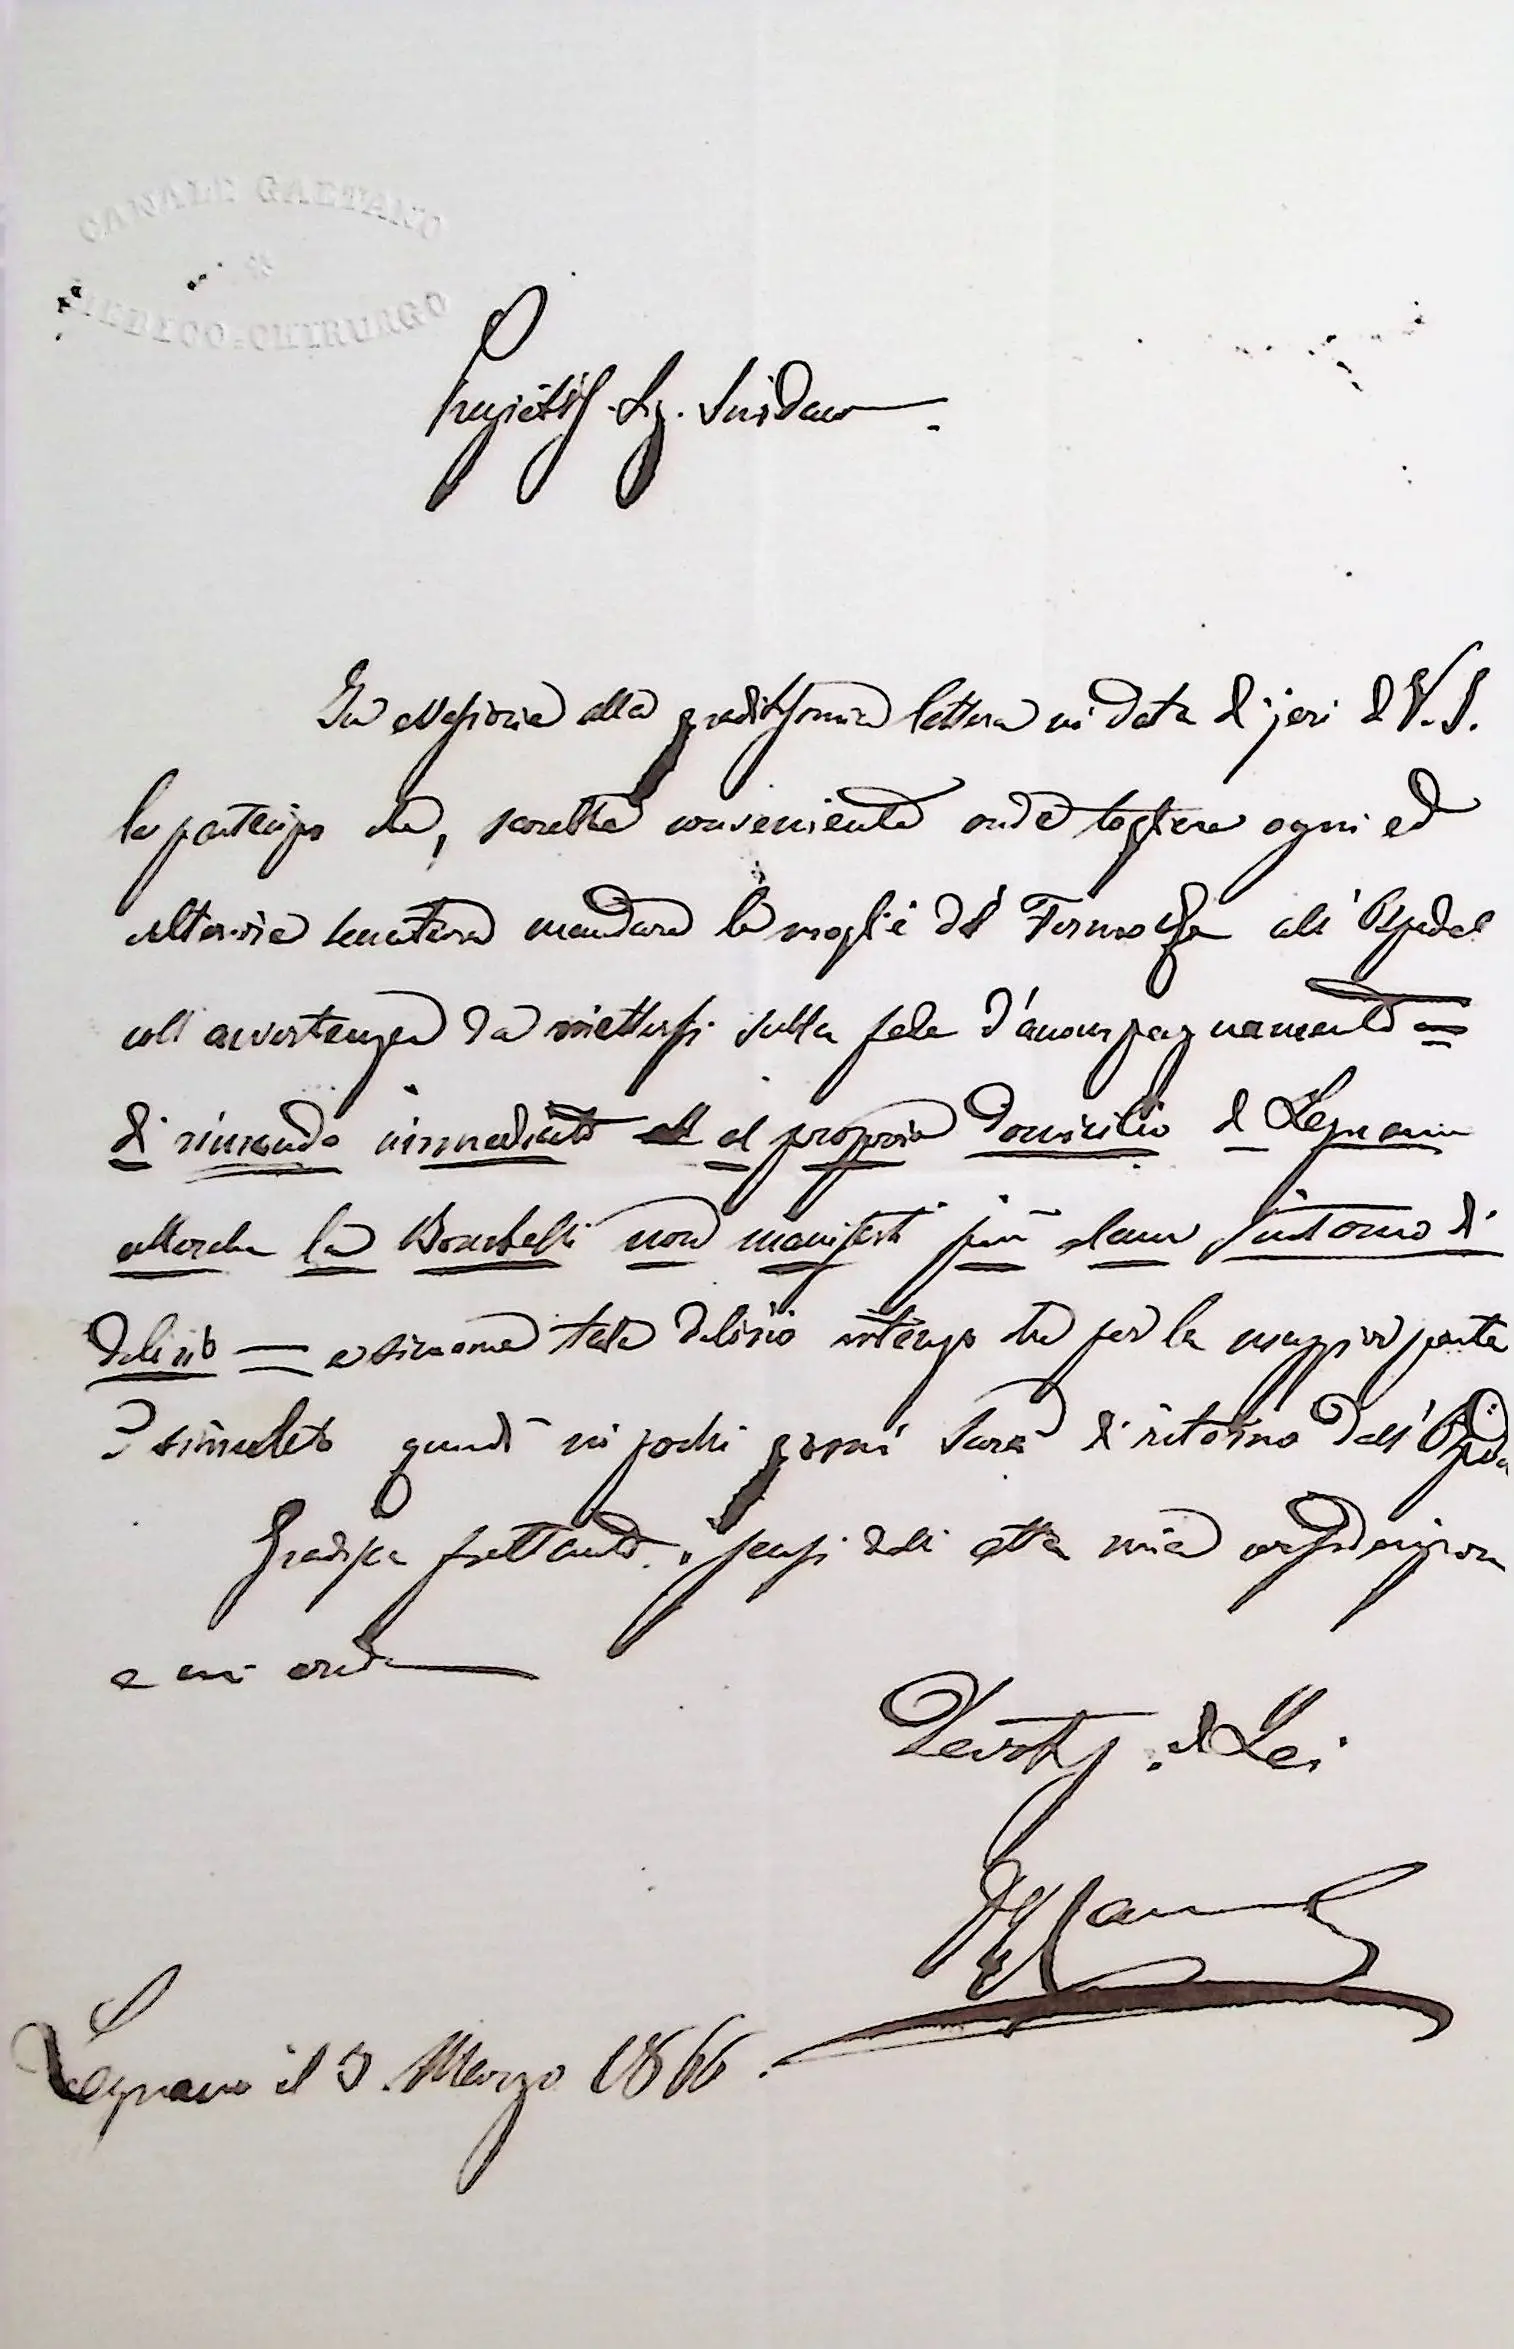 CANALI GAETANO
MEDICO-CHIRURGO
Pregiatis. Sig. Sindaco
In evasione alla graditissima lettera in data di jeri di V. S.
le partecipo che, sarebbe conveniente onde togliere ogni ed
ulteriore mandare la moglie del all'Ospedal
coll'avvertenza da mettersi sulla fede d'accompagnamento =
di rimando immediato al proprio domicilio di Legnano
allorché la Bombelli non manifesti più alcun sintomo di
delirio = e siccome tale delirio ritengo che per la maggior parte
è simulato quindi in pochi giorni sarà di ritorno dall'Ospeda
Gradisca frattanto i sensi della mia considerazione
e mi creda
Devotis. di Lei
Legnano il 3 Marzo 1866.